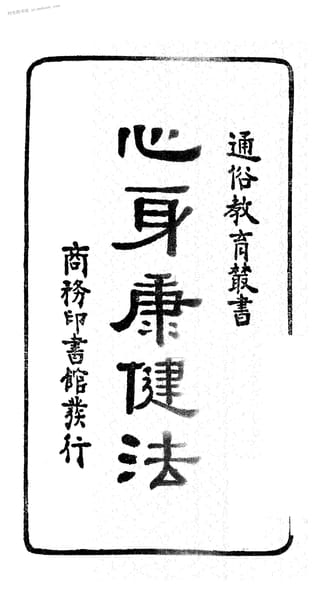 通俗教育叢書
心身康健法
商務印書館發行